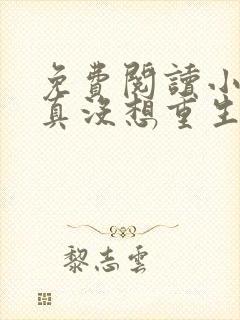 免費閱讀小
真沒想重生
黎志雲